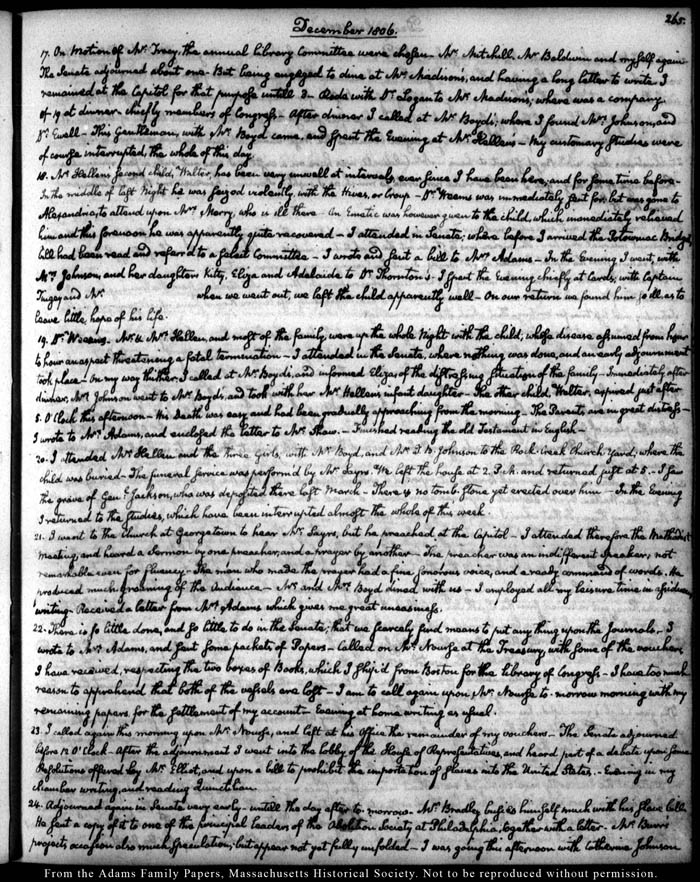 265.
December 1806.
17. On Motion of Mr. Tracy, the annual Library Committee were chosen – Mr. Mitchill, Mr. Baldwin and myself again
The Senate adjourned about one – But being engaged to dine at Mr. Madison's, and having a long letter to write I
remained at the Capitol for that purpose untill 3 – Rode with Dr. Logan to Mr. Madison's, where was a company
of 19 at dinner – chiefly members of Congress – After dinner I called at Mr. Boyd's; where I found Mrs. Johnson, and
Dr. Ewell – This Gentleman, with Mr. Boyd came, and spent the Evening at Mr. Hellen's – My customary studies were
of course interrupted, the whole of this day.
18. Mr. Hellen's second child, Walter, has been very unwell at intervals, ever since I have been here; and for some time before –
In the middle of last Night he was seized violently, with the Hives, or Croup – Dr. Weems was immediately sent for; but was gone to
Alexandria, to attend upon Mrs. Merry, who is ill there – An Emetic was however given to the child, which immediately relieved
him and this forenoon he was apparently quite recovered – I attended in Senate; where before I arrived the Potowmac Bridge
bill had been read and referr'd to a select Committee – I wrote and sent a bill to Mrs. Adams – In the Evening I went, with
Mrs. Johnson, and her daughters Kitty, Eliza and Adelaide to Dr. Thornton's. I spent the Evening chiefly at Cards, with Captain
Tingey and Mr. when we went out, we left the child apparently well – On our return we found him so ill as to
leave little hope of his life.
19. Dr. Weems, Mr. & Mrs. Hellen, and most of the family, were up the whole Night with the child; whose disease assumed from hour
to hour an aspect threatening a fatal termination – I attended in the Senate, where nothing was done, and an early adjournment
took place – On my way thither, I called at Mr. Boyd's, and informed Eliza, of the distressing situation of the family – Immediately after
dinner, Mrs. Johnson went to Mr. Boyd's, and took with her Mrs. Hellen's infant daughter. The other child, Walter, expired just after
5. O'Clock this afternoon – His Death was easy and had been gradually approaching from the morning – The Parents are in great distress –
I wrote to Mrs. Adams, and enclosed the letter to Mr. Shaw. – Finished reading the old Testament in English –
20. I attended Mr. Hellen and the three Girls, with Mr. Boyd, and Mr. T. B. Johnson to the Rock Creek Church Yard, where the
child was buried – The funeral service was perform'd by Mr. Sayrs. We left the house at 2. P.M. and returned just at 5. – I saw
the grave of Genl. Jackson, who was deposited there last March – There is no tomb-stone yet erected over him – In the Evening
I returned to the Studies, which have been interrupted almost the whole of this week.
21. I went to the Church at Georgetown to hear Mr. Sayrs, but he preached at the Capitol – I attended therefore the Methodist
Meeting, and heard a Sermon by one preacher, and a prayer by another – The preacher was an indifferent speaker; not
remarkable even for fluency – The man who made the prayer had a fine sonorous voice, and a ready command of words. He
produced much groaning of the Audience – Mr. and Mrs. Boyd dined with us – I employed all my leisure time in
writing – Received a letter from Mrs. Adams which gives me great uneasiness.
22. There is so little done, and so little to do in the Senate, that we scarcely find means to put any thing upon the Journals – I
wrote to Mrs. Adams, and sent some packets of Papers – Called on Mr. Nourse at the Treasury, with some of the vouchers,
I have received, respecting the two boxes of Books, which I ship'd from Boston for the Library of Congress – I have too much
reason to apprehend that both of the vessels are lost – I am to call again upon Mr. Nourse to-morrow morning with my
remaining papers, for the settlement of my account – Evening at home writing as usual.
23. I called again this morning upon Mr. Nourse, and left at his Office the remainder of my vouchers – The Senate adjourned
before 12 O'Clock – After the adjournment I went into the lobby of the House of Representatives, and heard part of a debate upon some
Resolutions offered by Mr. Elliot, and upon a bill to prohibit the importation of slaves into the United States. – Evening in my
chamber writing, and reading Quinctilian.
24. Adjourned again in Senate very early – untill the day after to-morrow – Mr. Bradley busies himself much with his slave bill.
He sent a copy of it to one of the principal leaders of the Abolition Society at Philadelphia, together with a letter – Mr. Burr's
projects occasion also much speculation; but appear not yet fully unfolded – I was going this afternoon with Catherine Johnson
From the Adams Family Papers, Massachusetts Historical Society. Not to be reproduced without permission.